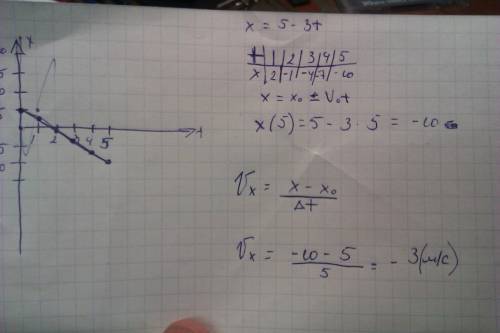 x = 5 - 3t
t | 1 | 2 | 3 | 4 | 5
x | 2 | -1 | -4 | -7 | -10
x = x₀ ± V₀t
x(5) = 5 - 3 · 5 = -10
Vₓ = x - x₀ / Δt
Vₓ = -10 - 5 / 5 = - 3 (м/с)
x
5
5
2 3 4 5 t
5